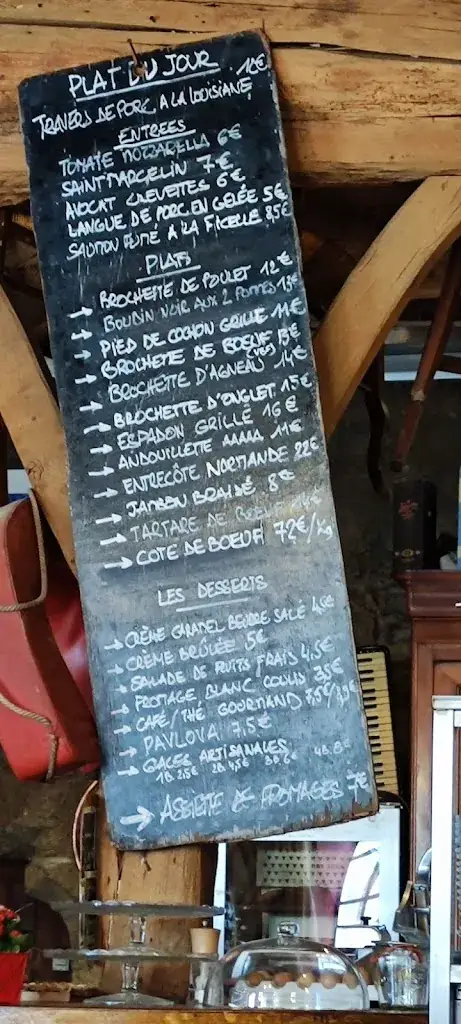 PLAT DU JOUR
TRAVERS DE PORC A LA LOUISIANE 12€
ENTREES
TOMATE MOZZARELLA 6€
SAINT MARCELIN 7€
AVOCAT CREVETTES 6€
LANGUE DE PORC EN GELÉE 5€
SAUMON FUMÉ A LA FICELLE 8,5€
PLATS
→ BROCHETTE DE POULET 12€
→ BOUDIN NOIR AUX 2 POMMES 13€
→ PIED DE COCHON GRILLÉ 11€
→ BROCHETTE DE BOEUF 13€
→ BROCHETTE D'AGNEAU 14€
→ BROCHETTE D'ONGLET 15€
→ ESPADON GRILLÉ 16€
→ ANDOUILLETTE AAAAA 11€
→ ENTRECÔTE NORMANDE 22€
→ JAMBON BRAISÉ 8€
→ TARTARE DE BOEUF
→ COTE DE BOEUF 72€/Kg
LES DESSERTS
→ CRÈME CARAMEL BEURRE SALÉ 4,5€
→ CRÈME BRÛLÉE 5€
→ SALADE DE FRUITS FRAIS 4,5€
→ FROMAGE BLANC COULIS 3,5€
→ CAFÉ/THÉ GOURMAND 7,5€/
→ PAVLOVA 7,5€
→ GLACES ARTISANALES
1B 2,5€ 2B 4,5€ 3B 6€ 4B 8€
→ ASSIETTE DE FROMAGES 7€